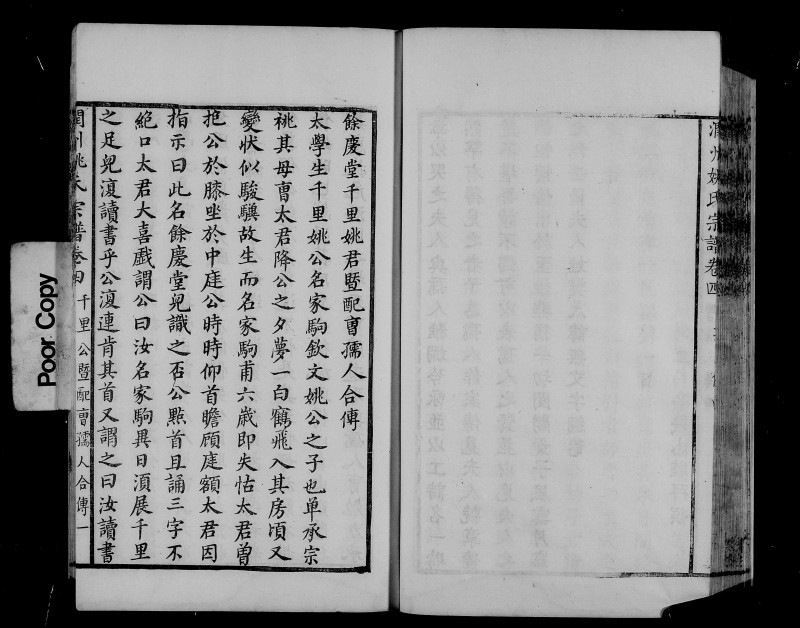 潤州姚氏宗譜卷四
餘慶堂千里姚君暨配曹孺人合傳
太學生千里姚公名家駒欽文姚公之子也单承宗
祧其母曹太君降公之夕夢一白鶴飛入其房頃又
變状似駿驥故生而名家駒甫六歲即失怙太君曽
抱公於膝坐於中庭公時時仰首瞻顧庭額太君因
指示曰此名餘慶堂兒識之否公㸃首且誦三字不
絕口太君大喜戲謂公曰汝名家駒異日湏展千里
之足兒復讀書乎公復連肯其首又謂之曰汝讀書
潤州姚氏宗譜卷四 千里公暨配曹孺人合傳一
Poor Copy